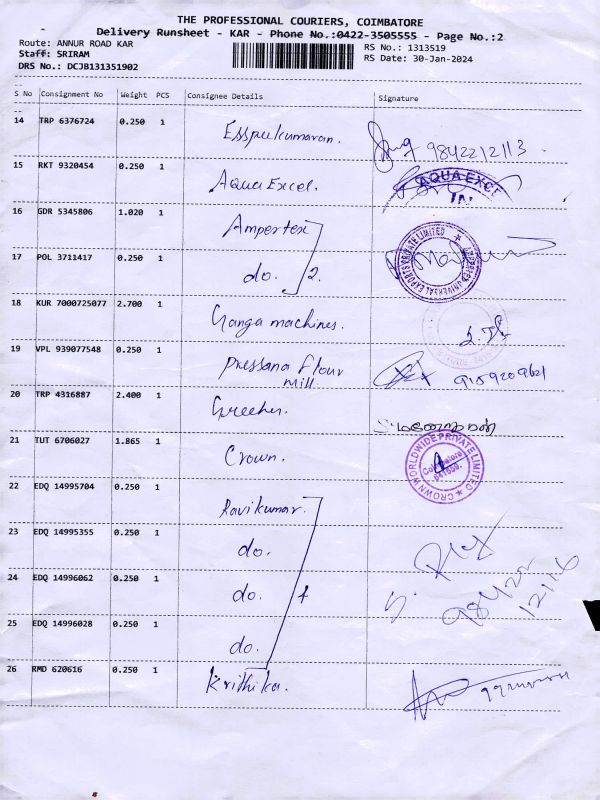 THE PROFESSIONAL COURIERS, COIMBATORE
Delivery Runsheet - KAR - Phone No.:0422-3505555 - Page No.:2
Route: ANNUR ROAD KAR
RS No.: 1313519
Staff: SRIRAM
RS Date: 30-Jan-2024
DRS No.: DCJB131351902
S No Consignment No Weight PCS Consignee Details Signature
14 TRP 6376724 0.250 1
9842212113
15 RKT 9320454 0.250 1 Aqua Excel. AQUA EXCE
16 GDR 5345806 1.020 1 Ampertex
17 POL 3711417 0.250 1 do. 2.
18 KUR 7000725077 2.700 1 Ganga machines.
19 VPL 939077548 0.250 1 Prssana flour
mill
9159209621
20 TRP 4316887 2.400 1
21 TUT 6706027 1.865 1 Crown. CROWN WORLDWIDE PRIVATE LIMITED Coimbatore
22 EDQ 14995704 0.250 1 Ravikumar.
23 EDQ 14995355 0.250 1 do.
24 EDQ 14996062 0.250 1 do. 4
98422
12116
25 EDQ 14996028 0.250 1 do.
26 RMD 620616 0.250 1 Krithika.